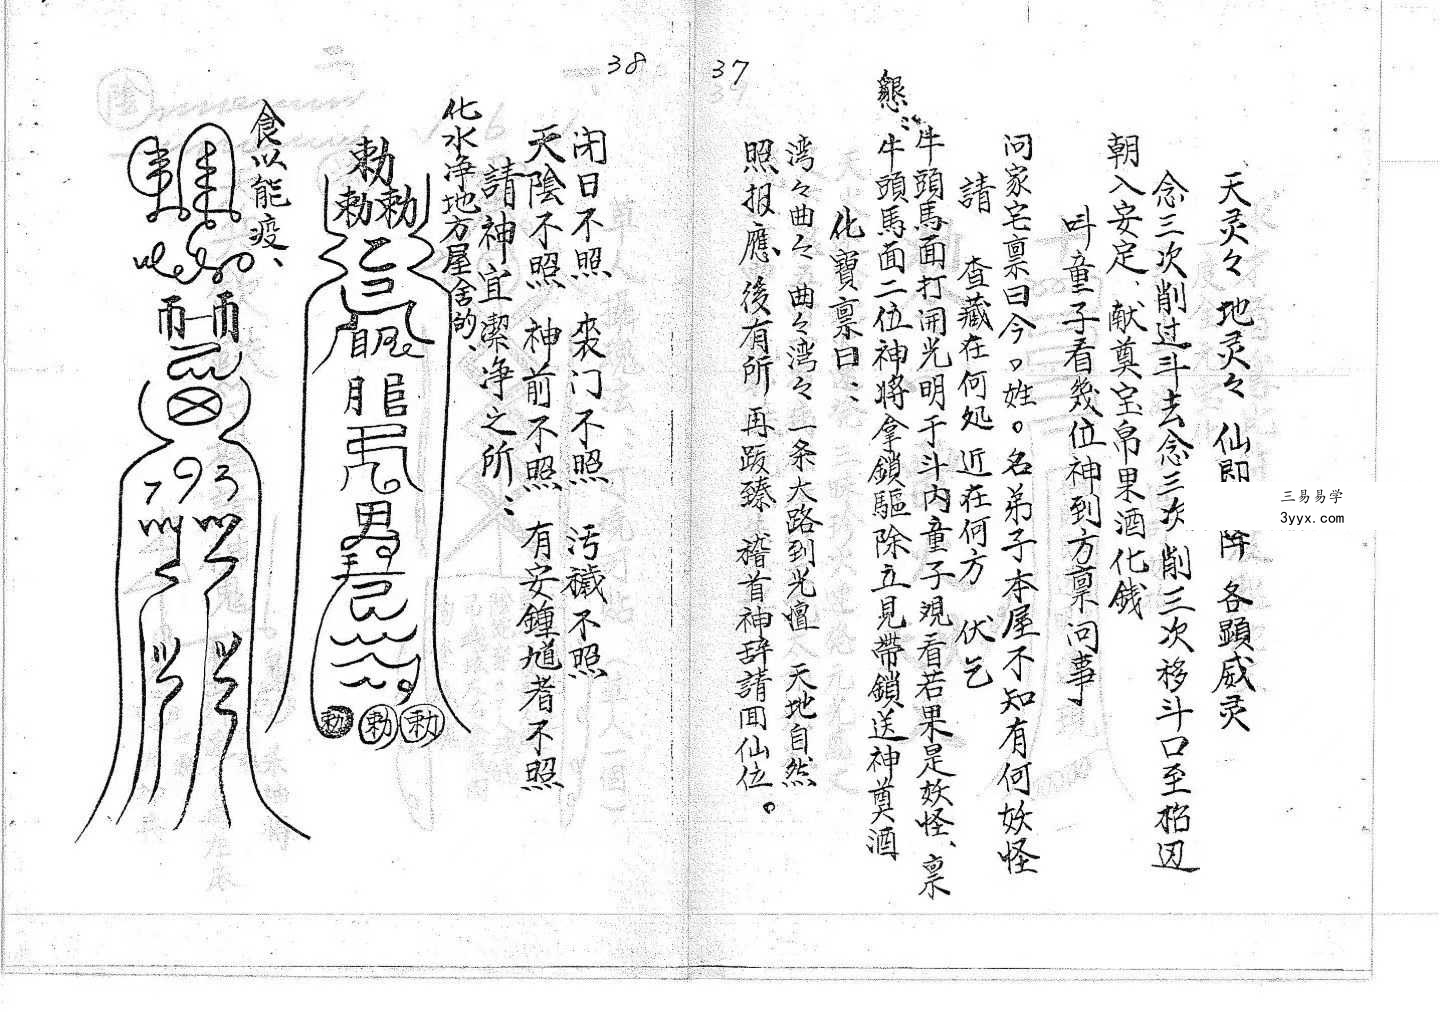 37
天灵々 地灵々 仙即 降 各顕威灵
念三次削过斗去念三次削三次移斗口至 边
朝入安定、献奠宝帛果酒化銭
呌童子看幾位神到方禀问事
问家宅禀曰今。姓。名弟子本屋不知有何妖怪
請 查藏在何処 近在何方 伏乞
牛頭馬面打開光明于斗内童子覌看若果是妖怪、禀
懇：牛頭馬面二位神将拿鎖驅除立見带鎖送神奠酒
化寶禀曰：
湾々曲々 曲々湾々 一条大路到光壇 天地自然
照报應、後有所 再 臻 稽首神辞請囬仙位。
38
闭日不照 丧门不照 汚穢不照
天陰不照 神前不照 有安鍾馗者不照
請神宜潔浄之所：
化水浄地方屋舍的、
勅
勅勅
勅 勅 勅
食以能疫、
三易易学
3yyx.com